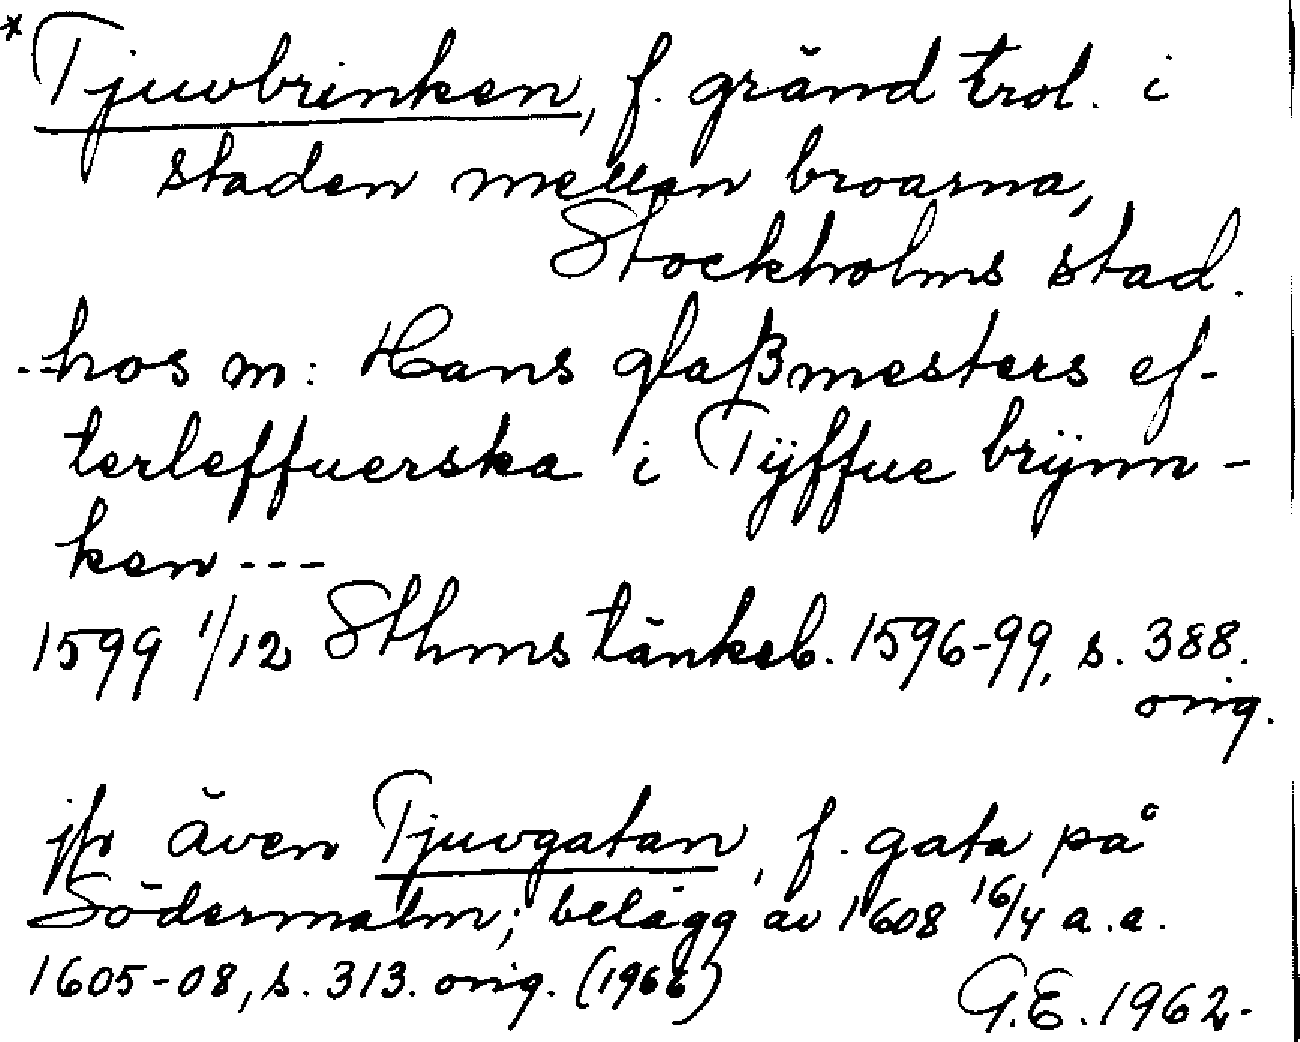 * Tjuvbrinken, f. gränd trol. i
staden mellan broarna,
Stockholms stad.
- - hos m: Hans glaßmesters ef-
terleffuerska i Tÿffue brÿnn-
ken - - -
1599 1/12 Sthms tänkeb. 1596-99, s. 388.
orig.
jfr även Tjuvgatan, f. gata på
Södermalm; belägg av 1608 16/4 a.a.
1605-08, s. 313. orig. (1966)
G.E. 1962.